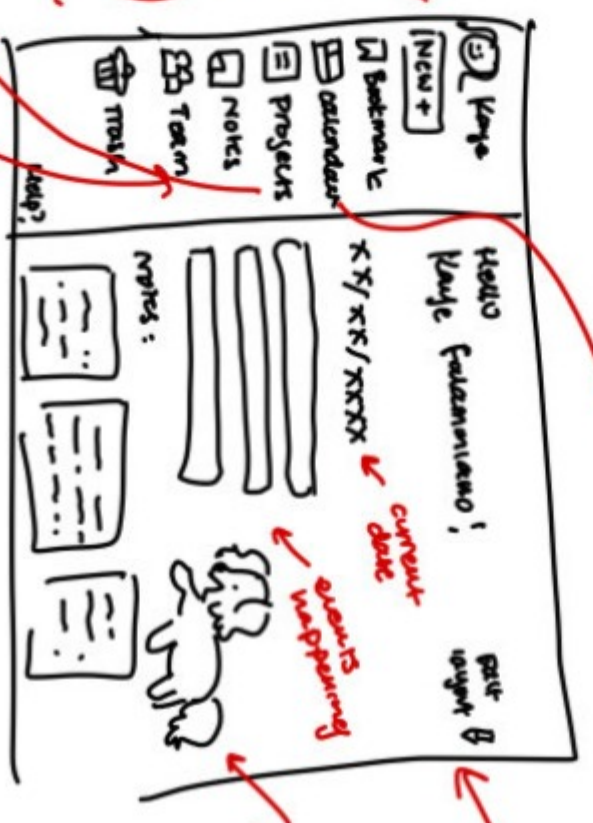 Kaye
New +
Bookmark
Calendar
Projects
Notes
Team
Trash
Help?
Hello
Kaye
xx/xx/xxxx
current
date
events
happening
Notes: